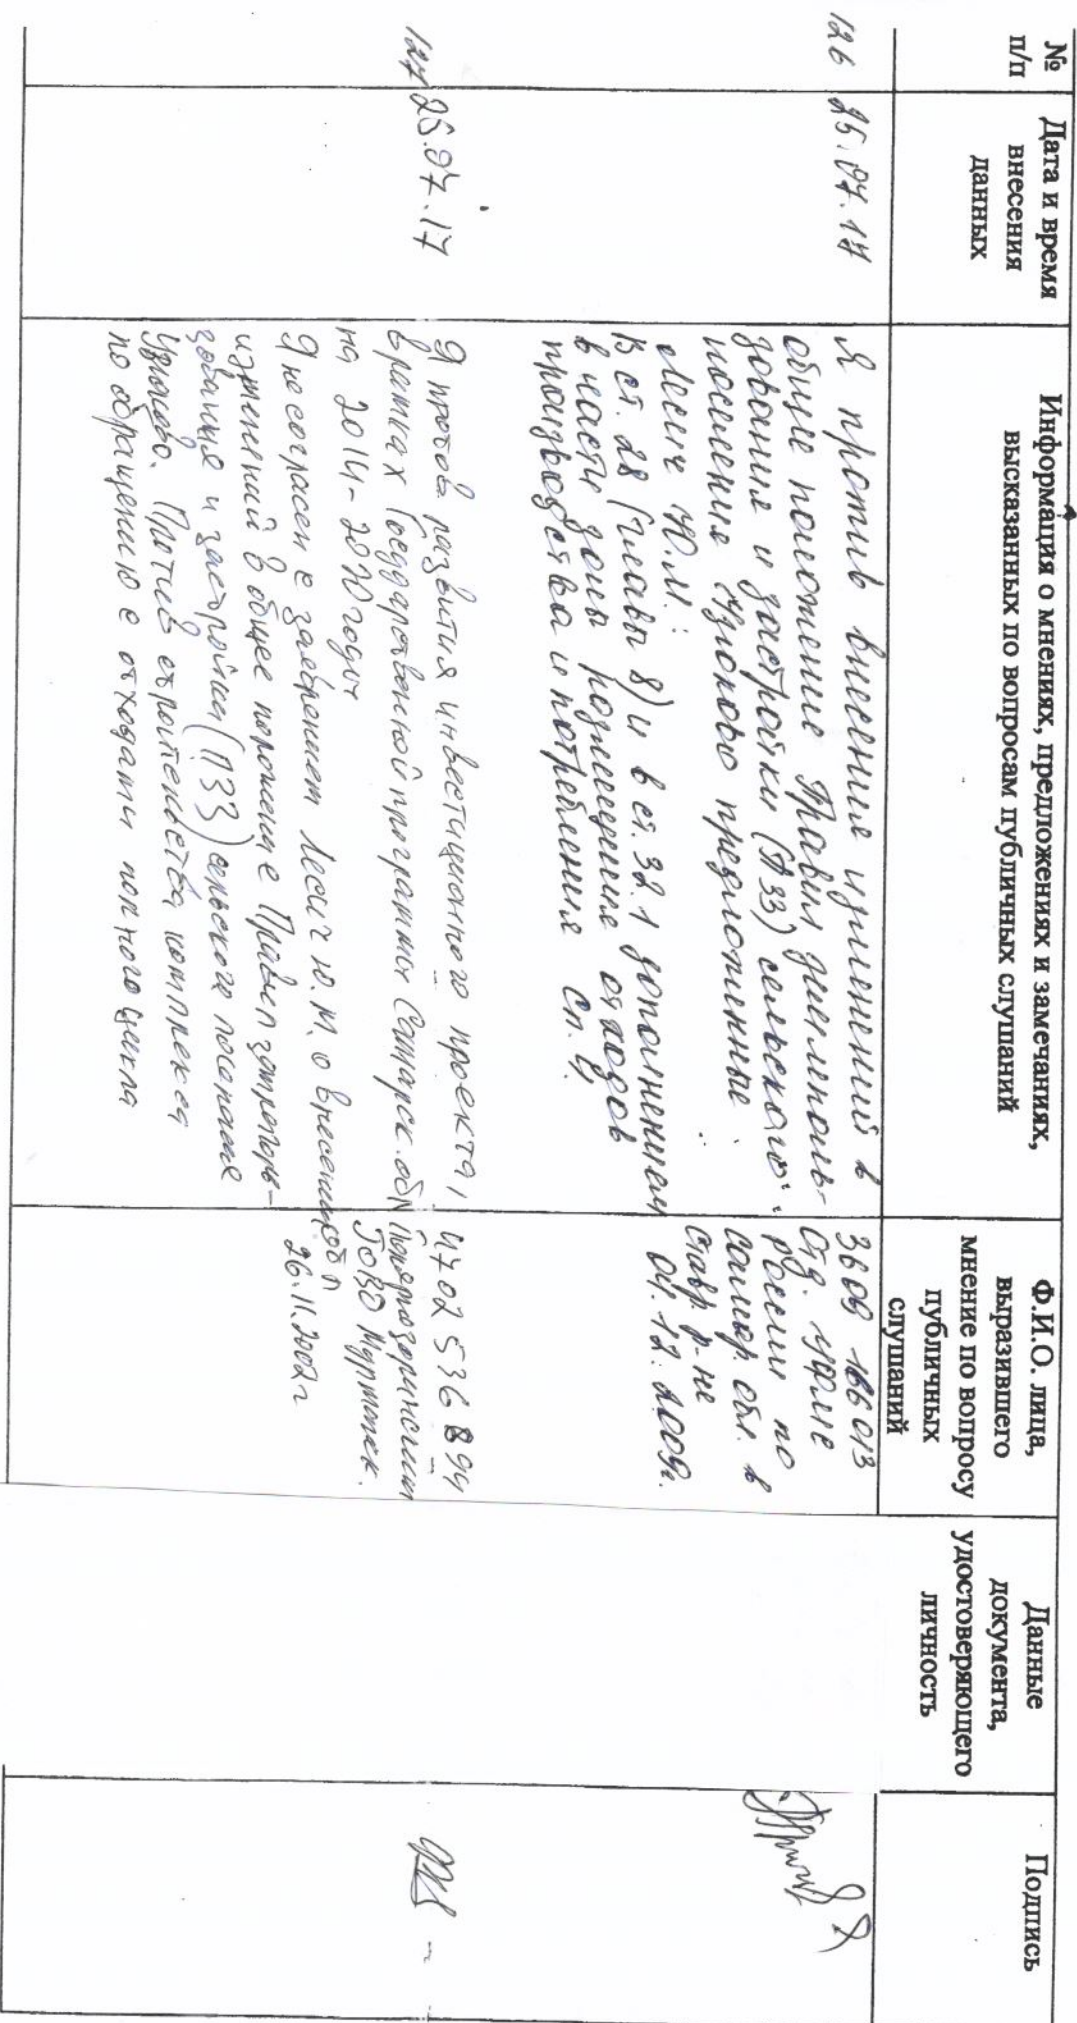 №
п/п
Дата и время
внесения
данных
Информация о мнениях, предложениях и замечаниях,
высказанных по вопросам публичных слушаний
Ф.И.О. лица,
выразившего
мнение по вопросу
публичных
слушаний
Данные
документа,
удостоверяющего
личность
Подпись
126
25.07.17
Я против внесения изменений в
общее положение Правил землеполь-
зования и застройки (ПЗЗ) сельского
поселения Узюково предложенные
Лесик Ю.М.:
В ст. 28 (Главы 8) и в ст. 32.1 дополнением
в части зоны размещения отходов
производства и потребления Сп. 4.
3609 166013
отд. УФМС
России по
самар. обл. в
Ставр. р-не
04.12.2009г.
127
25.07.17
Я против развития инвестиционного проекта,
в рамках Государственной программы Самарск. обл
на 2014-2020 годы
Я не согласен с заявлением Лесик Ю.М. о внесении
изменений в общее положение Правил землеполь-
зования и застройки (ПЗЗ) сельского поселения
Узюково. Против строительства комплекса
по обращению с отходами полного цикла
4702 536894
Полярнозоринским
ГОВД Мурманск.
обл
26.11.2002г